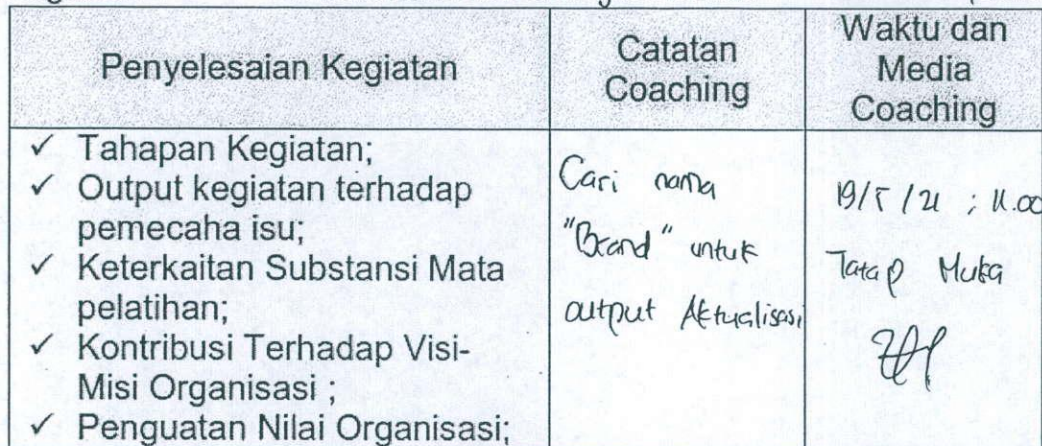 Penyelesaian Kegiatan
Catatan
Coaching
Waktu dan
Media
Coaching
✓ Tahapan Kegiatan;
✓ Output kegiatan terhadap
pemecaha isu;
✓ Keterkaitan Substansi Mata
pelatihan;
✓ Kontribusi Terhadap Visi-
Misi Organisasi ;
✓ Penguatan Nilai Organisasi;
Cari nama
"Brand" untuk
output Aktualisasi
19/5/21 ; 11.00
Tatap Muka